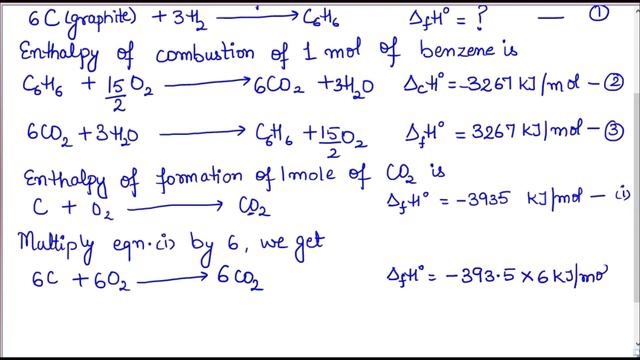 6C (graphite) + 3H₂ ⟶ C₆H₆ ΔfH° = ? — ①
Enthalpy of combustion of 1 mol of benzene is
C₆H₆ + 15/2 O₂ ⟶ 6CO₂ + 3H₂O ΔcH° = -3267 KJ/mol — ②
6CO₂ + 3H₂O ⟶ C₆H₆ + 15/2 O₂ ΔfH° = 3267 KJ/mol — ③
Enthalpy of formation of 1 mole of CO₂ is
C + O₂ ⟶ CO₂ ΔfH° = -3935 KJ/mol — (i)
Multiply eqn. (i) by 6, we get
6C + 6O₂ ⟶ 6CO₂ ΔfH° = -393.5 × 6 KJ/mo